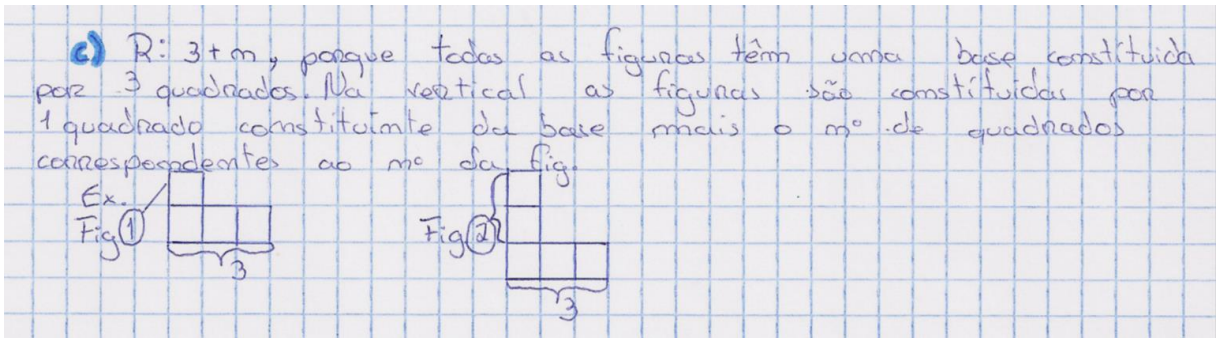 c) R: 3+n, porque todas as figuras têm uma base constituida
por 3 quadrados. Na vertical as figuras são constituídas por
1 quadrado constituinte da base mais o nº de quadrados
correspondentes ao nº da fig.
Ex.
Fig 1
3
Fig 2
3